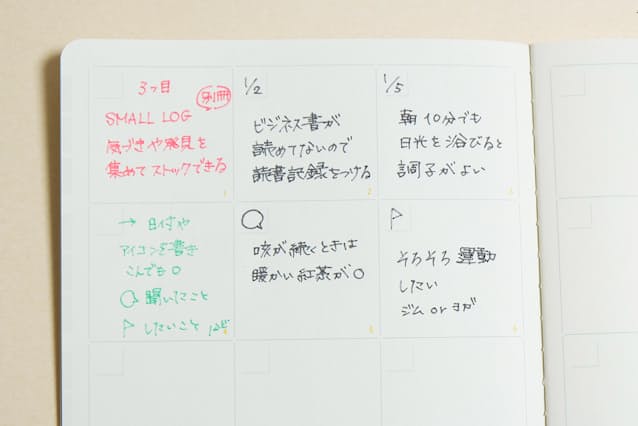 3つ目
別冊
SMALL LOG
気づきや発見を
集めてストックできる
1
1/2
ビジネス書が
読めてないので
読書記録をつける
2
1/5
朝10分でも
日光を浴びると
調子がよい
3
→ 日付や
アイコンを書き
こんでも○
聞いたこと
したいこと など
4
咳が続くときは
暖かい紅茶が○
5
そろそろ運動
したい
ジム or ヨガ
6